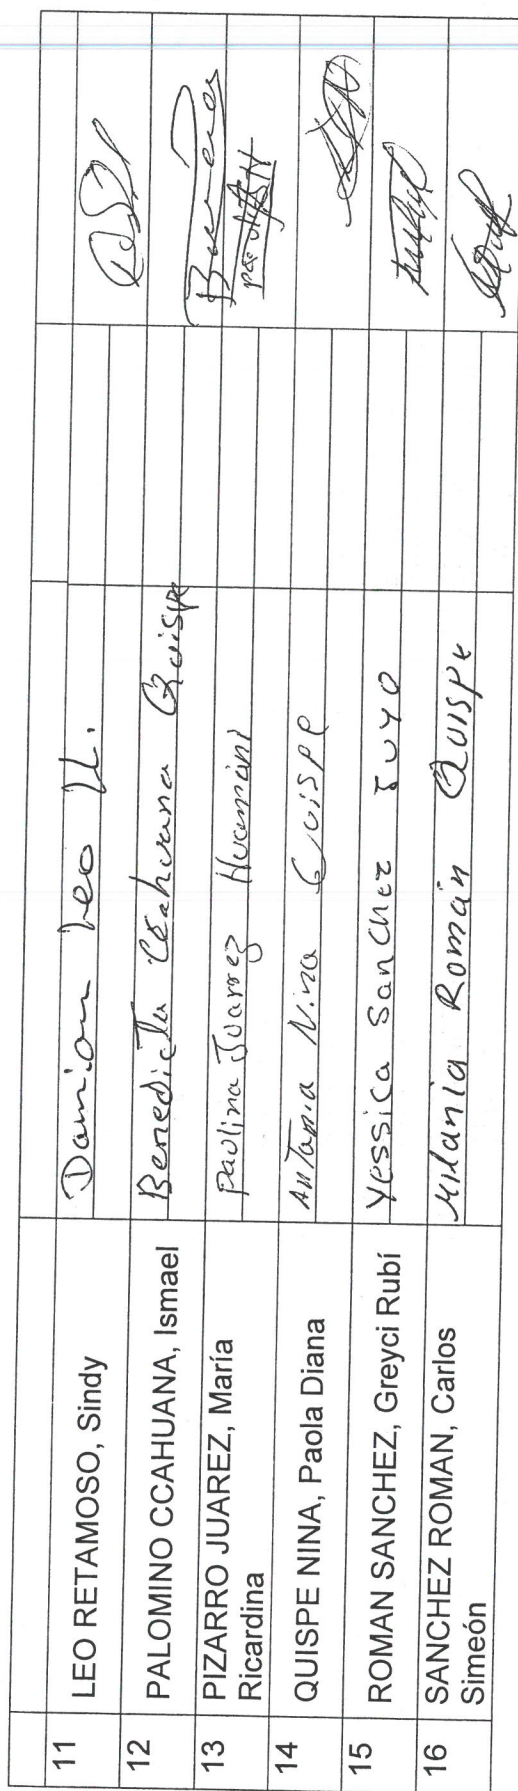 11 LEO RETAMOSO, Sindy Damian Leo H.
12 PALOMINO CCAHUANA, Ismael Benedicta Ccahuana Quispe
13 PIZARRO JUAREZ, María Paulina Juarez Huamani
Ricardina
14 QUISPE NINA, Paola Diana Antonia Nina Quispe
15 ROMAN SANCHEZ, Greyci Rubí Yessica Sanchez Suyo
16 SANCHEZ ROMAN, Carlos Milania Román Quispe
Simeón